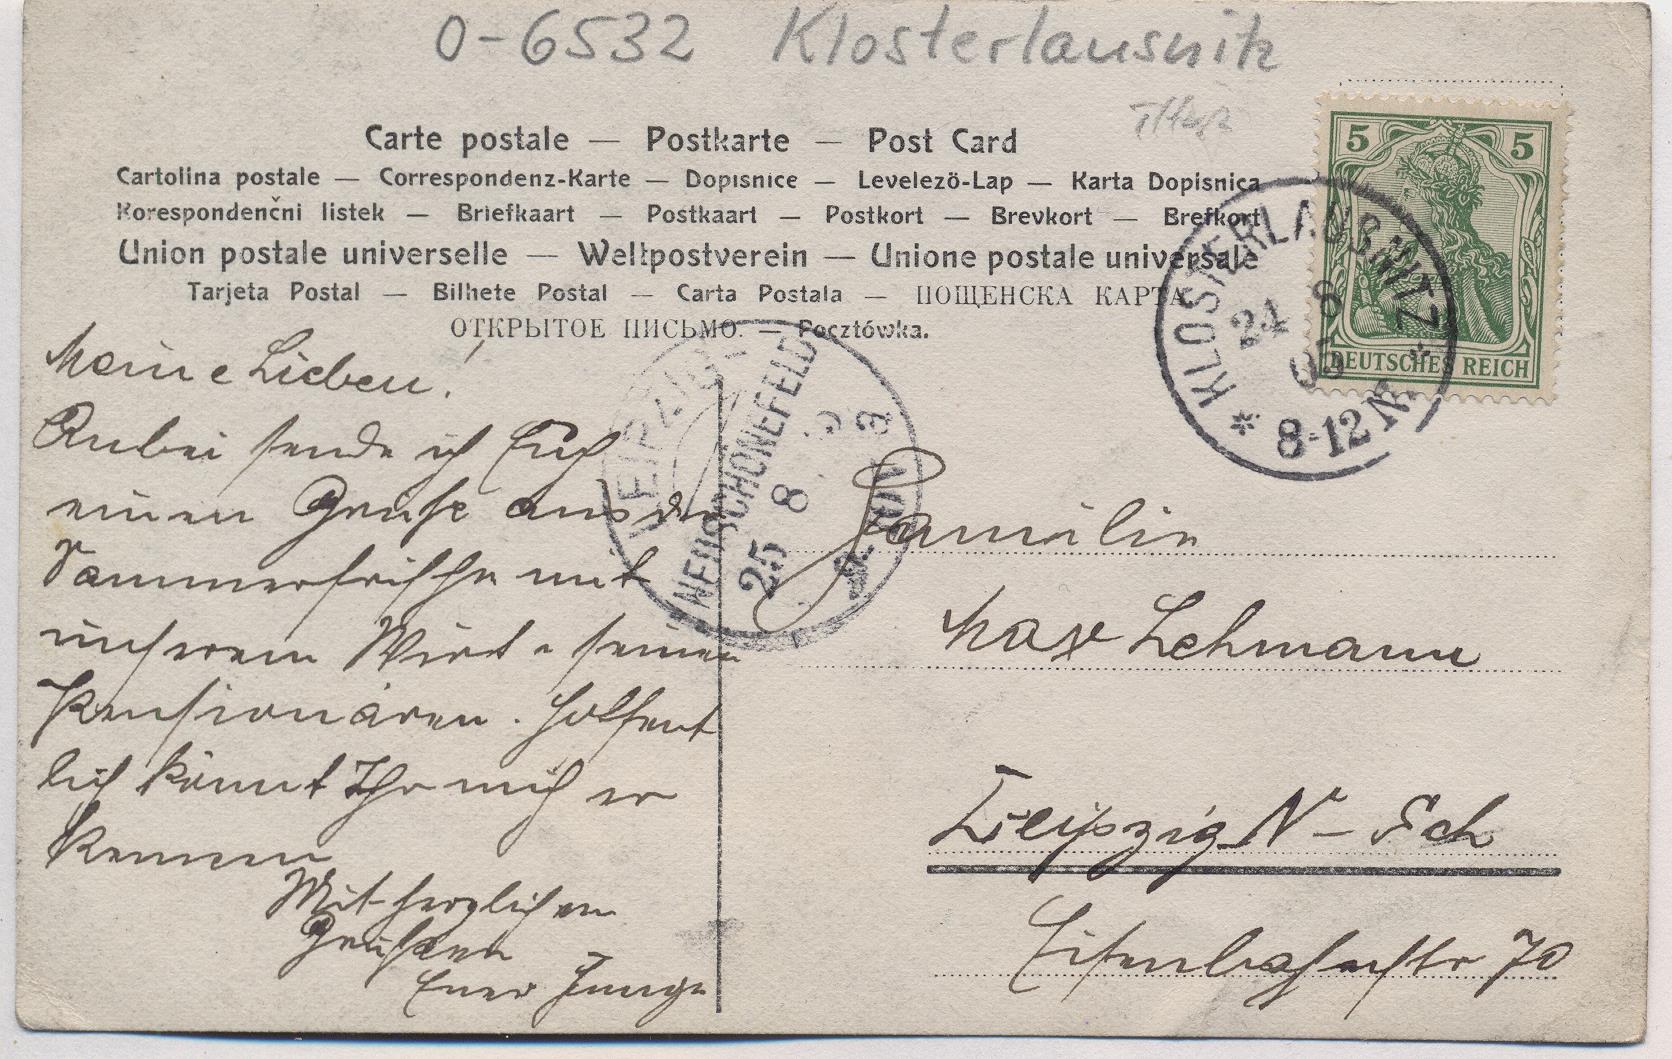 0-6532 Klosterlausnitz
Carte postale — Postkarte — Post Card
Cartolina postale — Correspondenz-Karte — Dopisnice — Levelezö-Lap — Karta Dopisnica
Korespondenčni listek — Briefkaart — Postkaart — Postkort — Brevkort — Brefkort
Union postale universelle — Weltpostverein — Unione postale universale
Tarjeta Postal — Bilhete Postal — Carta Postala — ПОЩЕНСКА КАРТА
ОТКРЫТОЕ ПИСЬМО. — Pocztówka.
5 5
DEUTSCHES REICH
* KLOSTERLAUSNITZ *
24 8
8-12 N.
LEIPZIG
NEUSCHÖNEFELD
25 8
Meine Lieben!
Anbei sende ich Euch
einen Gruß aus der
Sommerfrische mit
unserem Wirt u seinen
Pensionären. Hoffent
lich könnt Ihr mich er
kennen
Mit herzlichen
Grüßen
Euer Junge
Familie
Max Lehmann
Leipzig N – Sch
Eisenbahnstr 70